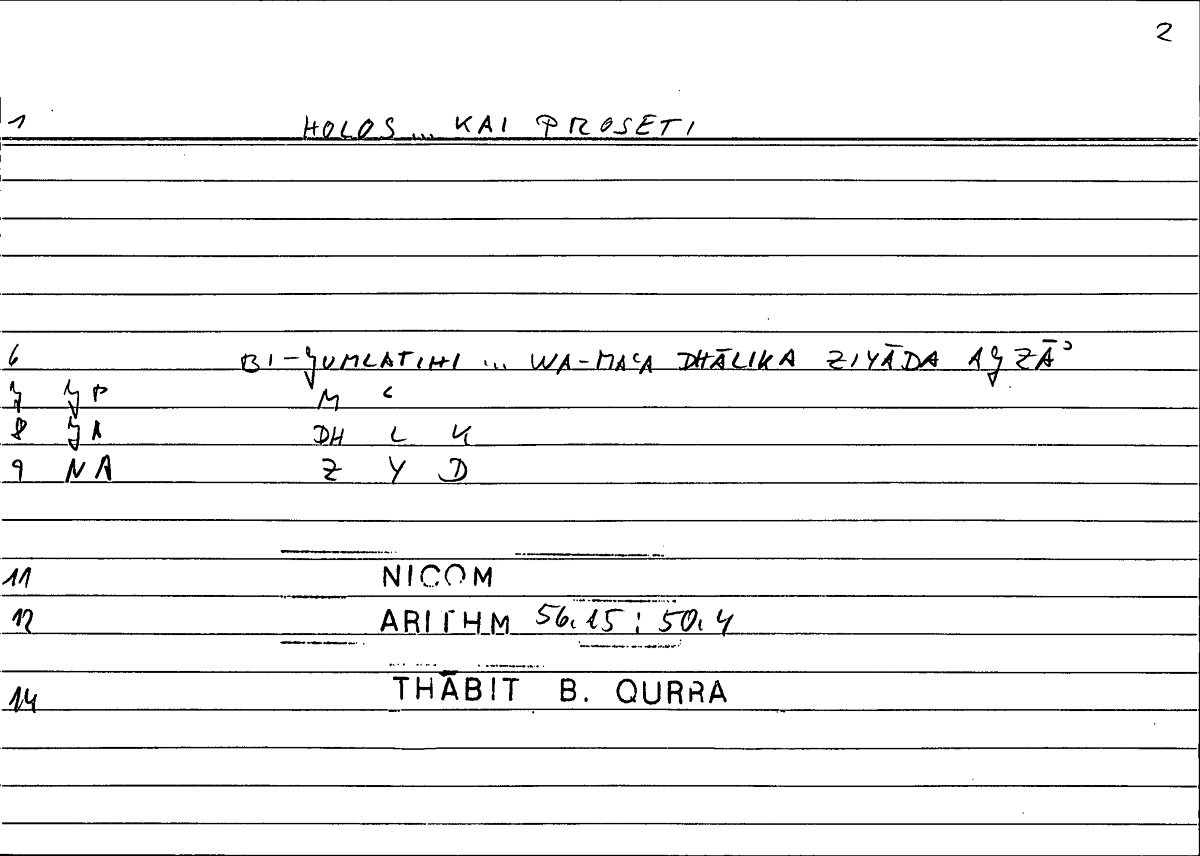 2
1 HOLOS ... KAI PROSETI
6 BI-ǧUMLATIHI ... WA-MAʿA DHĀLIKA ZIYĀDA AǧZĀʾ
7 ǧP M ʿ
8 ǧA DH L K
9 NA Z Y D
11 NICOM
12 ARITHM 56.15 : 50.4
14 THĀBIT B. QURRA